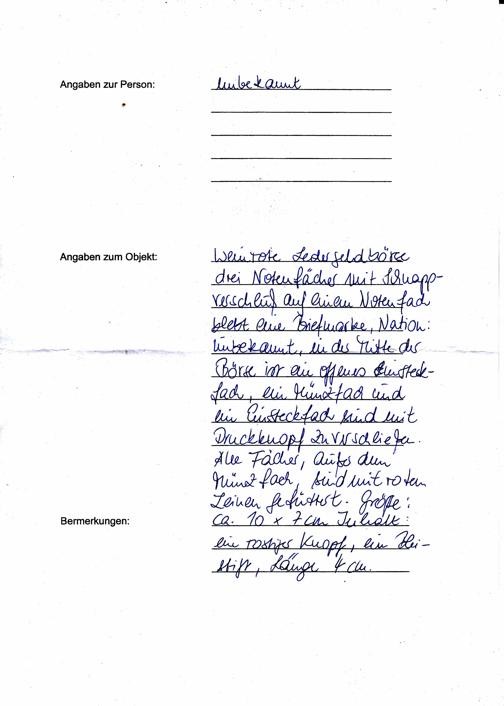 Angaben zur Person: Unbekannt
Angaben zum Objekt: Weinrote Ledergeldbörse
drei Notenfächer mit Schnapp-
verschluß auf einem Notenfach
klebt eine Briefmarke, Nation:
Unbekannt, in der Mitte der
Börse ist ein offenes Einsteck-
fach, ein Münzfach und
ein Einsteckfach sind mit
Druckknopf zu verschließen.
Alle Fächer, außer dem
Münzfach, sind mit roten
Leinen gefüttert. Größe:
Bermerkungen: ca. 10 x 7 cm Inhalt:
ein rostiger Knopf, ein Blei-
stift, Länge 4 cm.